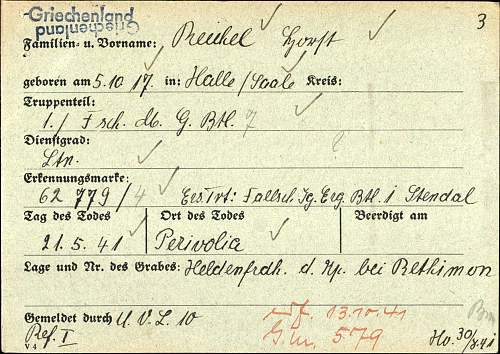 Griechenland
Griechenland
3
Familien- u. Vorname: Reichel Horst
geboren am 5.10.17. in: Halle/Saale Kreis:
Truppenteil:
1./ Fsch. G. Btl. 7
Dienstgrad:
Ltn.
Erkennungsmarke:
62 779/4 Fallsch. Jg. Erg. Btl. 1 Stendal
Tag des Todes Ort des Todes Beerdigt am
21.5.41 Perivolia
Lage und Nr. des Grabes: Heldenfrdh. d. Kp. bei Rethimon
Gemeldet durch U. V. L. 10 13.10.41
Ref. I 579 Ho. 30/
V 4